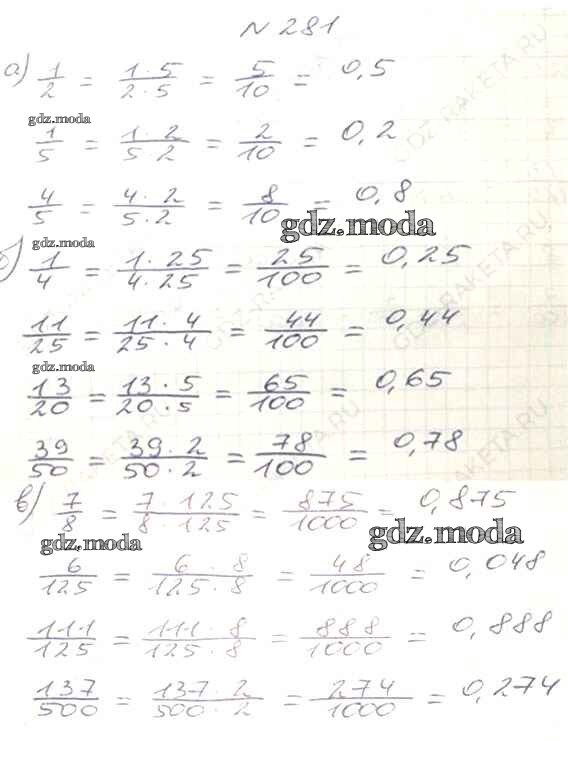 N 281
а) 1/2 = 1·5/2·5 = 5/10 = 0,5
gdz.moda
1/5 = 1·2/5·2 = 2/10 = 0,2
4/5 = 4·2/5·2 = 8/10 = 0,8
gdz.moda
gdz.moda
б) 1/4 = 1·25/4·25 = 25/100 = 0,25
11/25 = 11·4/25·4 = 44/100 = 0,44
gdz.moda
13/20 = 13·5/20·5 = 65/100 = 0,65
39/50 = 39·2/50·2 = 78/100 = 0,78
в) 7/8 = 7·125/8·125 = 875/1000 = 0,875
gdz.moda
gdz.moda
6/125 = 6·8/125·8 = 48/1000 = 0,048
111/125 = 111·8/125·8 = 888/1000 = 0,888
137/500 = 137·2/500·2 = 274/1000 = 0,274
GDZ-RAKETA.RU
GDZ-RAKETA.RU
GDZ-RAKETA.RU